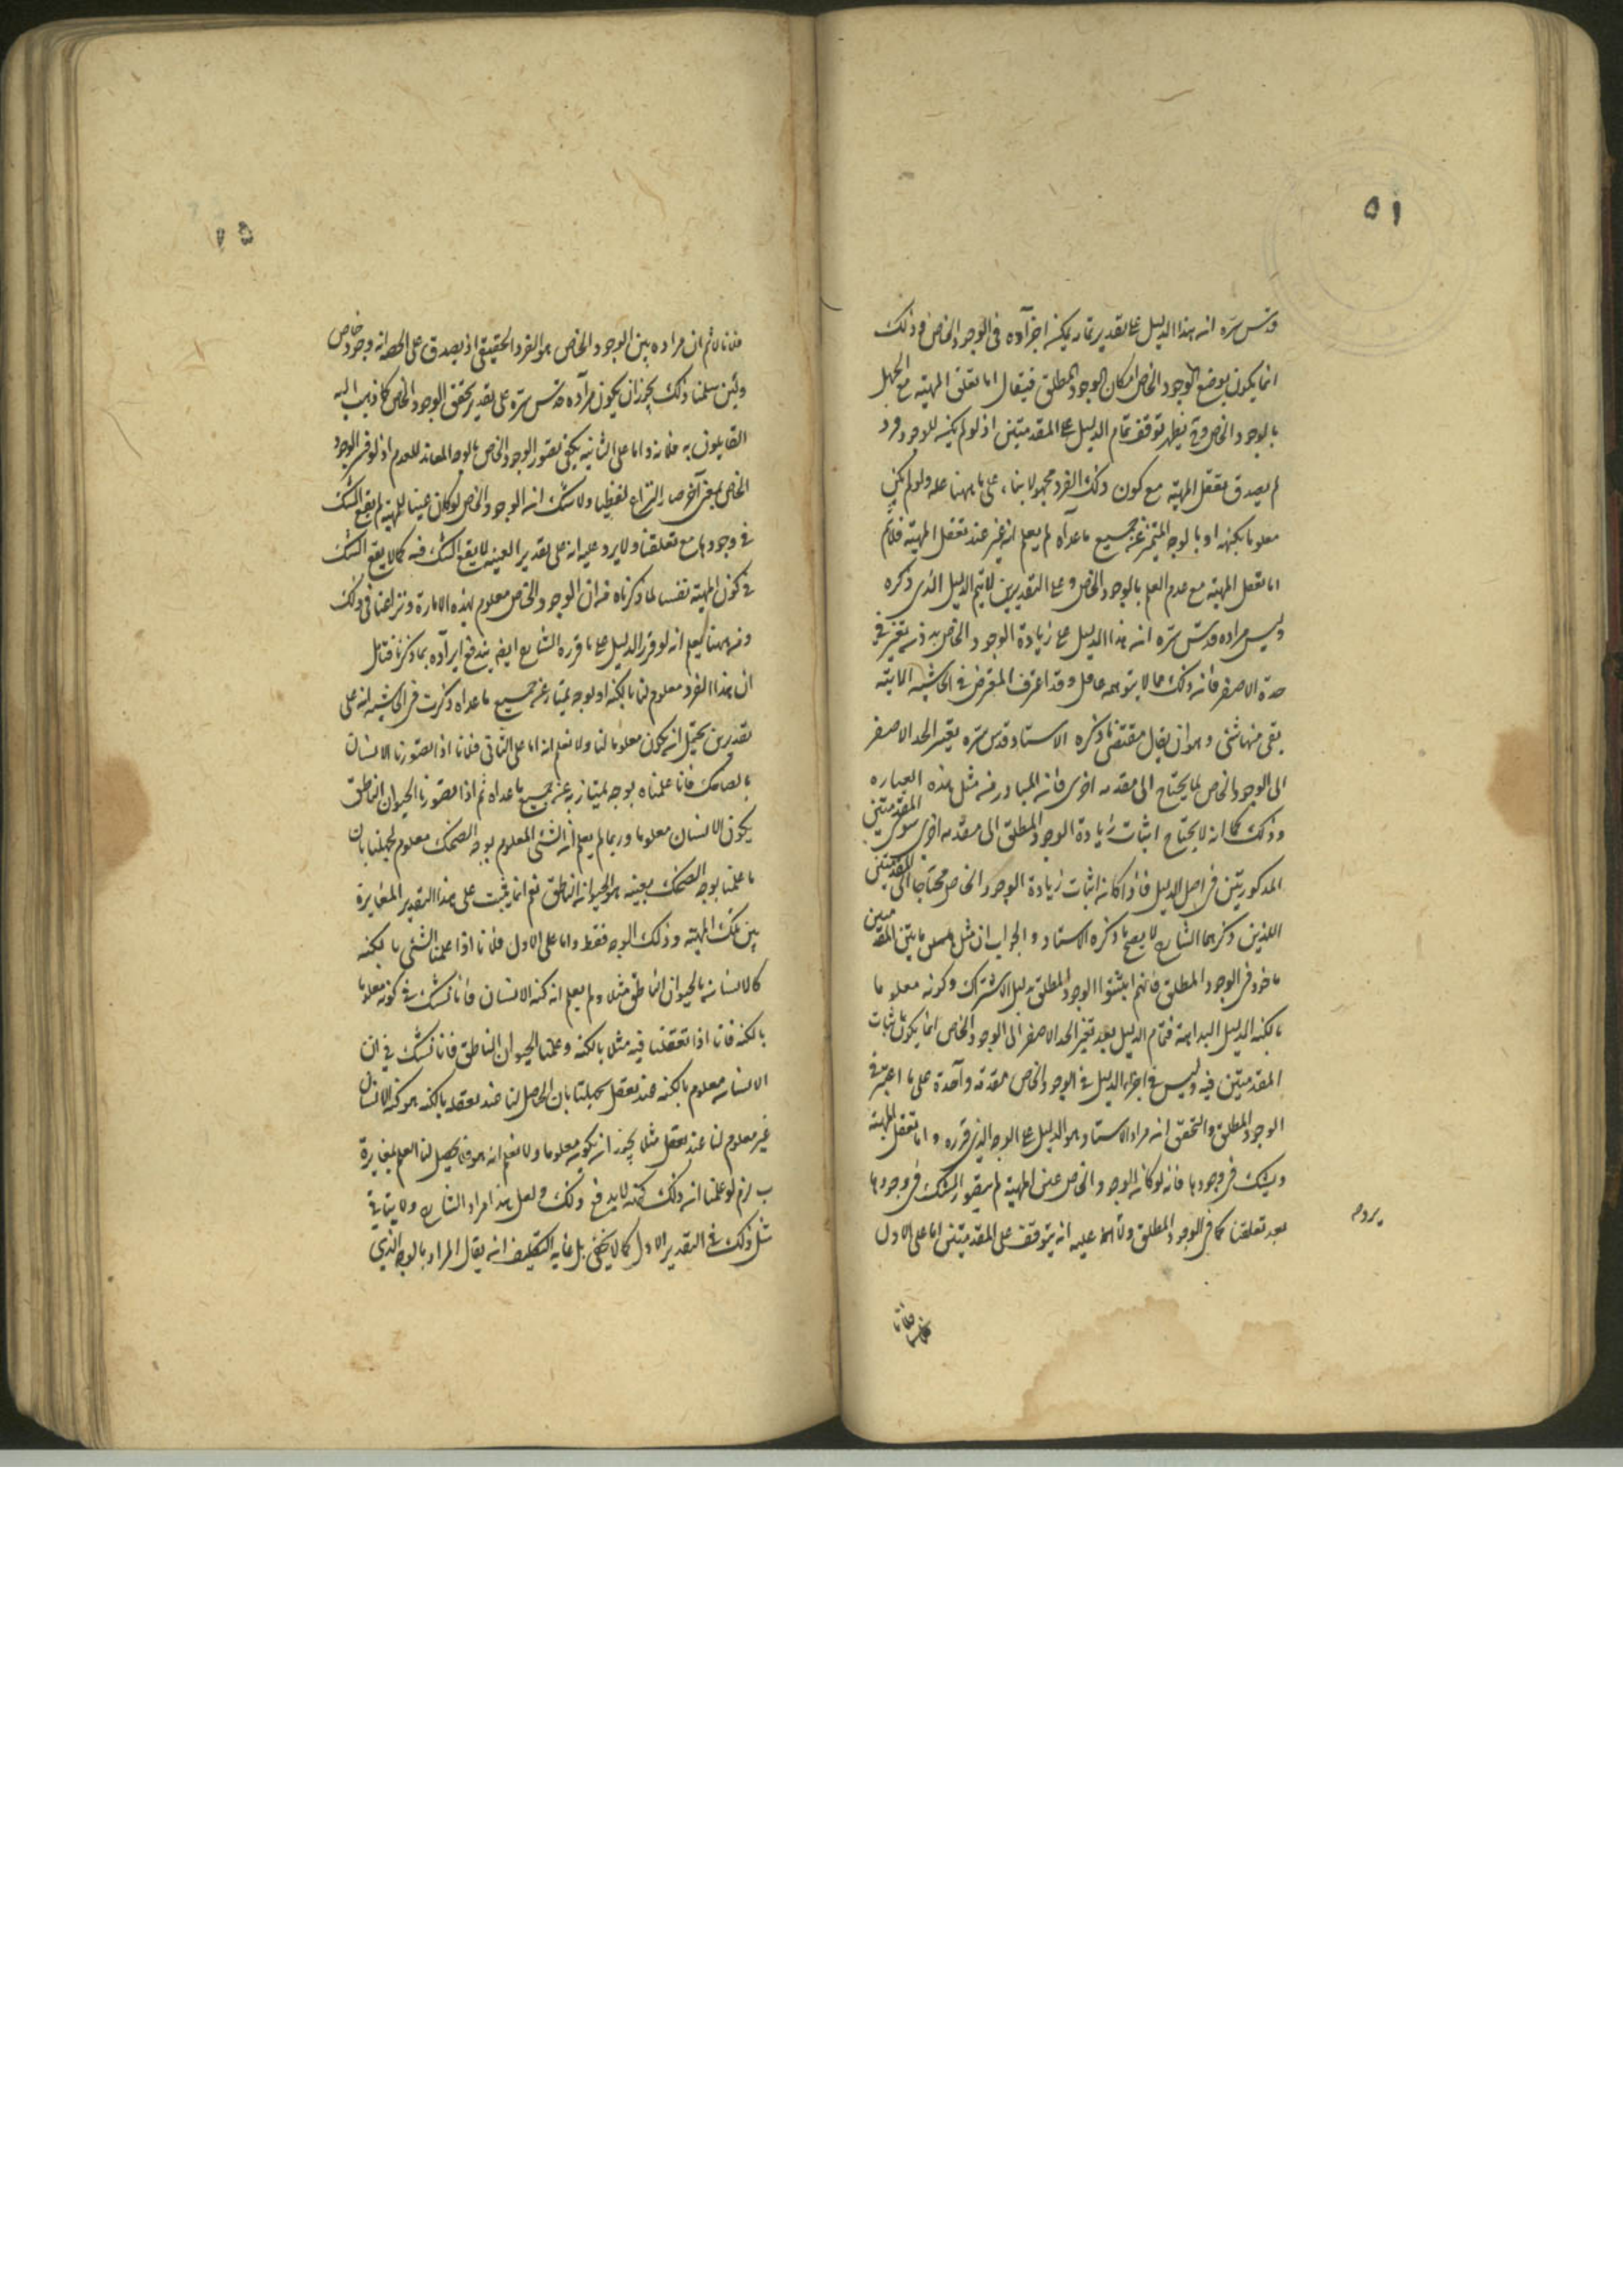 ٥١
قدس سره ان هذا الدليل على تقدير تمامه يمكن اجرآؤه فى الوجود الخاص وذلك
انما يكون بوضع الوجود الخاص مكان الوجود المطلق فيقال انا نعقل المهية مع الجهل
بالوجود الخاص وح يظهر توقف تمام الدليل على المقدمتين اذ لو لم يكن للوجود فرد
لم يصدق تعقل المهية مع كون ذلك الفرد مجهولا بناء على ما هيهنا عليه ولو لم يكن
معلوما بكنهه او بالوجه المتميز عن جميع ما عداه لم يعلم انه غير عند تعقل المهية فلا يتم
انا نعقل المهية مع عدم العلم بالوجود الخاص وعلى التقديرين لا يتم الدليل الذى ذكره
وليس مراده قدس سره ان هذا الدليل على زيادة الوجود الخاص بدون تغير فى
حده الاصغر فان ذلك مما لا يتوهمه عاقل وقد اعترف المعترض فى الحاشية الاتية
بقى منها شئ وهو ان يقال مقتضى ما ذكره الاستاد قدس سره بتغير الحد الاصغر
الى الوجود الخاص لما يحتاج الى مقدمه اخرى فانه المتبادر من مثل هذه العباره
وذلك كما انه لا يحتاج اثبات زيادة الوجود المطلق الى مقدمه اخرى سوى المقدمتين
المذكورتين فى اصل الدليل فاذا كان اثبات زيادة الوجود الخاص محتاجا الى المقدمتين
اللذين ذكرهما الشارح لا يصح ما ذكره الاستاد والجواب ان مثل هاتين المقدمتين
ماخوذ فى الوجود المطلق فانهم اثبتوا الوجود المطلق بدليل الاشتراك وكونه معلوما
بالكنه الدليل البداهة فتمام الدليل بعد تغير الحد الاصغر الى الوجود الخاص انما يكون باثبات
المقدمتين فيه وليس فى اجراء الدليل فى الوجود الخاص مقدمة واحدة على ما اعتبر فى
الوجود المطلق والتحقيق ان مراد الاستاد هو الدليل على الوجه الذى قرره وانا نعقل المهية
ونشك فى وجودها فانه لو كان الوجود الخاص عين المهية لم يتصور الشك فى وجودها
بعد تعلقنا كما فى الوجود المطلق ولا عليه انه يتوقف على المقدمتين اما على الاول
يرد
فلانا
٥٢
فلانا لا نم ان مراده بين الوجود الخاص هو الفرد الحقيقى اذ يصدق على الحصة انه وجود خاص
ولئن سلمنا ذلك يجوز ان يكون مرآده قدس سره على تقدير تحقق الوجود الخاص كما ذهب اليه
القايلون به فلانه واما على الثانى يكفى تصور الوجود الخاص بالوجه المعاند للعدم اذ لو فسر الوجود
الخاص بمعنى آخر صار النزاع لفظيا ولا شك ان الوجود الخاص لو كان عينا للمهية لم يقع الشك
فى وجودها مع تعلقنا ولا يرد عليه انه على تقدير العينية لا يقع الشك فيه كما لا يقع الشك
فى كون المهية نفسها لما ذكرناه من ان الوجود الخاص معلوم بهذه الامارة ونزاعنا فى ذلك
ومن ههنا يعلم انه لو قرر الدليل على ما قرره الشارح ايضا يندفع ايرآده بما ذكرنا فتامل
ان هذا الفرد معلوم لنا بالكنه او بوجه يمتاز عن جميع ما عداه ذكرت فى الحاشية انه على
تقديرين يحتمل ان يكون معلوما لنا ولا نعلم انه اما على الثانى فلانا اذا تصورنا الانسان
بالضاحك فانا علمناه بوجه يمتاز به عن جميع ما عداه ثم اذا تصورنا الحيوان الناطق
يكون الانسان معلوما وربما لم يعلم ان الشئ المعلوم بوجه الضحك معلوم لجهلنا بان
ما علمنا بوجه الضحك بعينه هو الحيوان الناطق نعم انما يثبت على هذا التقدير المغايرة
بين تلك المهية وذلك الوجه فقط واما على الاول فلانا اذا علمنا الشئ بالكنه
كالانسان بالحيوان الناطق مثلا ولم يعلم انه كنه الانسان فانا نشك فى كونه معلوما
بالكنه فانا اذا تعقلنا فيه مثلا بالكنه وعلمنا الحيوان الناطق فانا نشك فى ان
الانسان معلوم بالكنه عند تعقل لجهلنا بان الحاصل لنا عند تعقله بالكنه هو كنه الانسان
غير معلوم لنا عند تعقل مثلا يجوز ان يكون معلوما ولا نعلم انه هو فلا يحصل لنا العلم بمغايرة
لزم لو علمنا ان ذلك كنهه لا يدفع ذلك ولعل هذا مراد الشارح ولا يتاتى
مثل ذلك فى التقدير الاول كما لا يخفى بل غاية التكليف ان يقال المراد بالوجه الذى